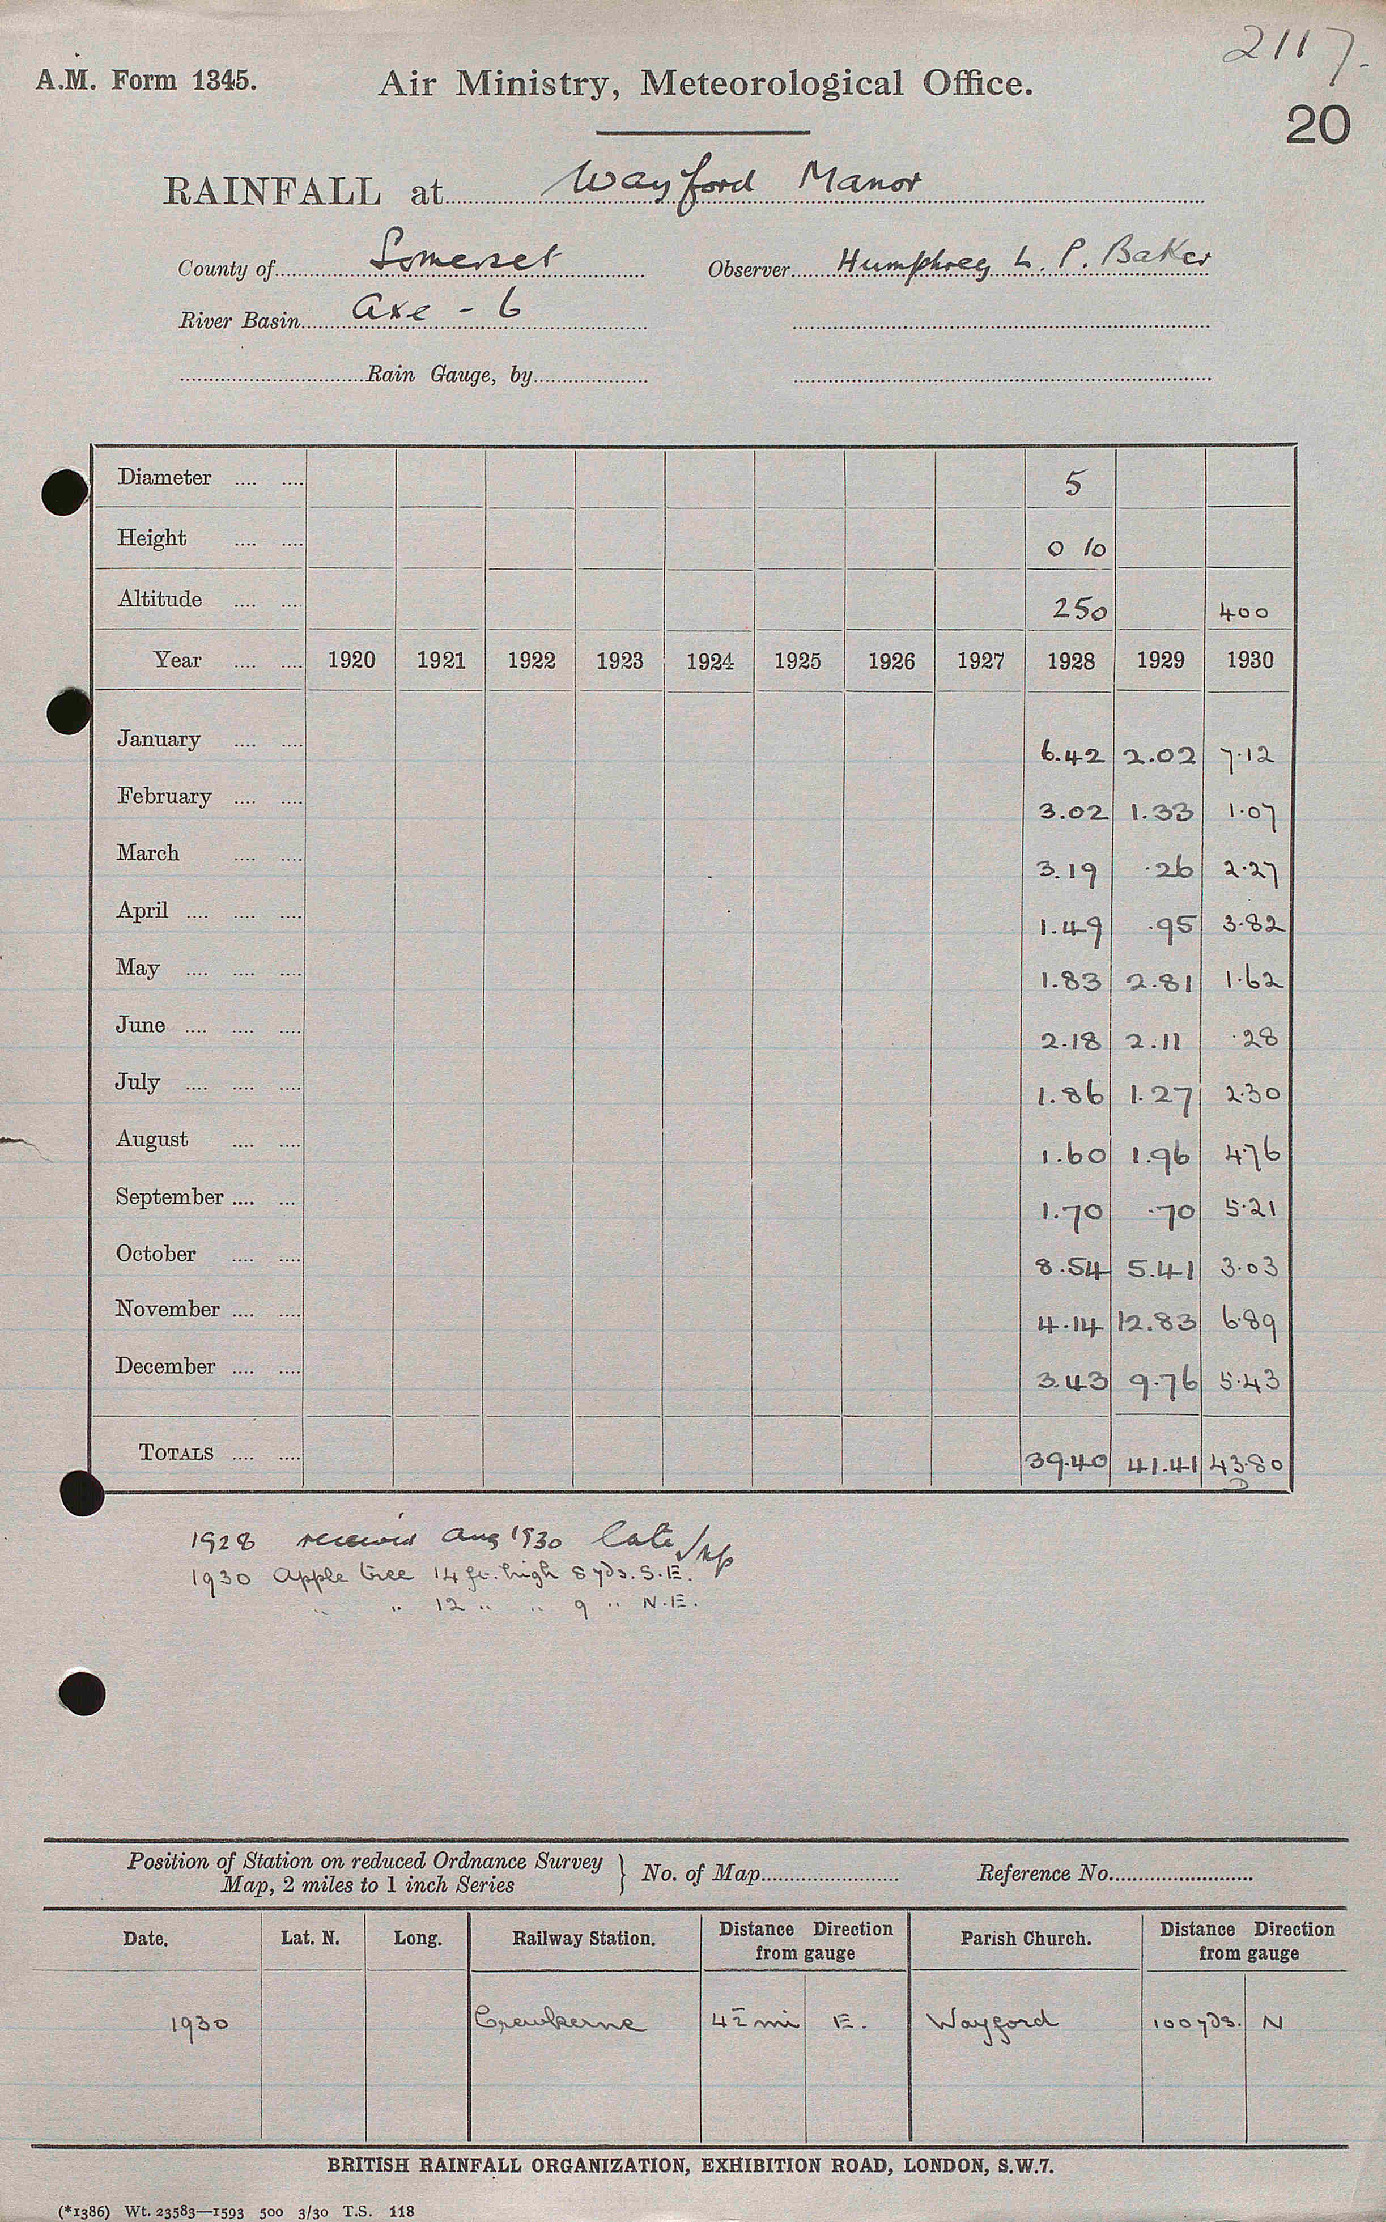 2117.
A.M. Form 1345. Air Ministry, Meteorological Office.
20
RAINFALL at Wayford Manor
County of Somerset Observer Humphrey L. P. Baker
River Basin Axe - 6
Rain Gauge, by
Diameter .... .... 5
Height .... .... 0 10
Altitude .... .... 250 400
Year .... .... 1920 1921 1922 1923 1924 1925 1926 1927 1928 1929 1930
January .... .... 6.42 2.02 7.12
February .... .... 3.02 1.33 1.07
March .... .... 3.19 .26 2.27
April .... .... .... 1.49 .95 3.82
May .... .... .... 1.83 2.81 1.62
June .... .... .... 2.18 2.11 .28
July .... .... .... 1.86 1.27 2.30
August .... .... 1.60 1.96 4.76
September .... .... 1.70 .70 5.21
October .... .... 8.54 5.41 3.03
November .... .... 4.14 12.83 6.89
December .... .... 3.43 9.76 5.43
TOTALS .... .... 39.40 41.41 43.80
1928 received Aug 1930 late
1930 Apple tree 14 ft. high 8 yds. S.E.
" " 12 " " 9 " N.E.
Position of Station on reduced Ordnance Survey
Map, 2 miles to 1 inch Series } No. of Map Reference No.
Date. Lat. N. Long. Railway Station. Distance Direction from gauge Parish Church. Distance Direction from gauge
1930 Crewkerne 4½ mi E. Wayford 100 yds. N
BRITISH RAINFALL ORGANIZATION, EXHIBITION ROAD, LONDON, S.W.7.
(*1386) Wt. 23583—1593 500 3/30 T.S. 118